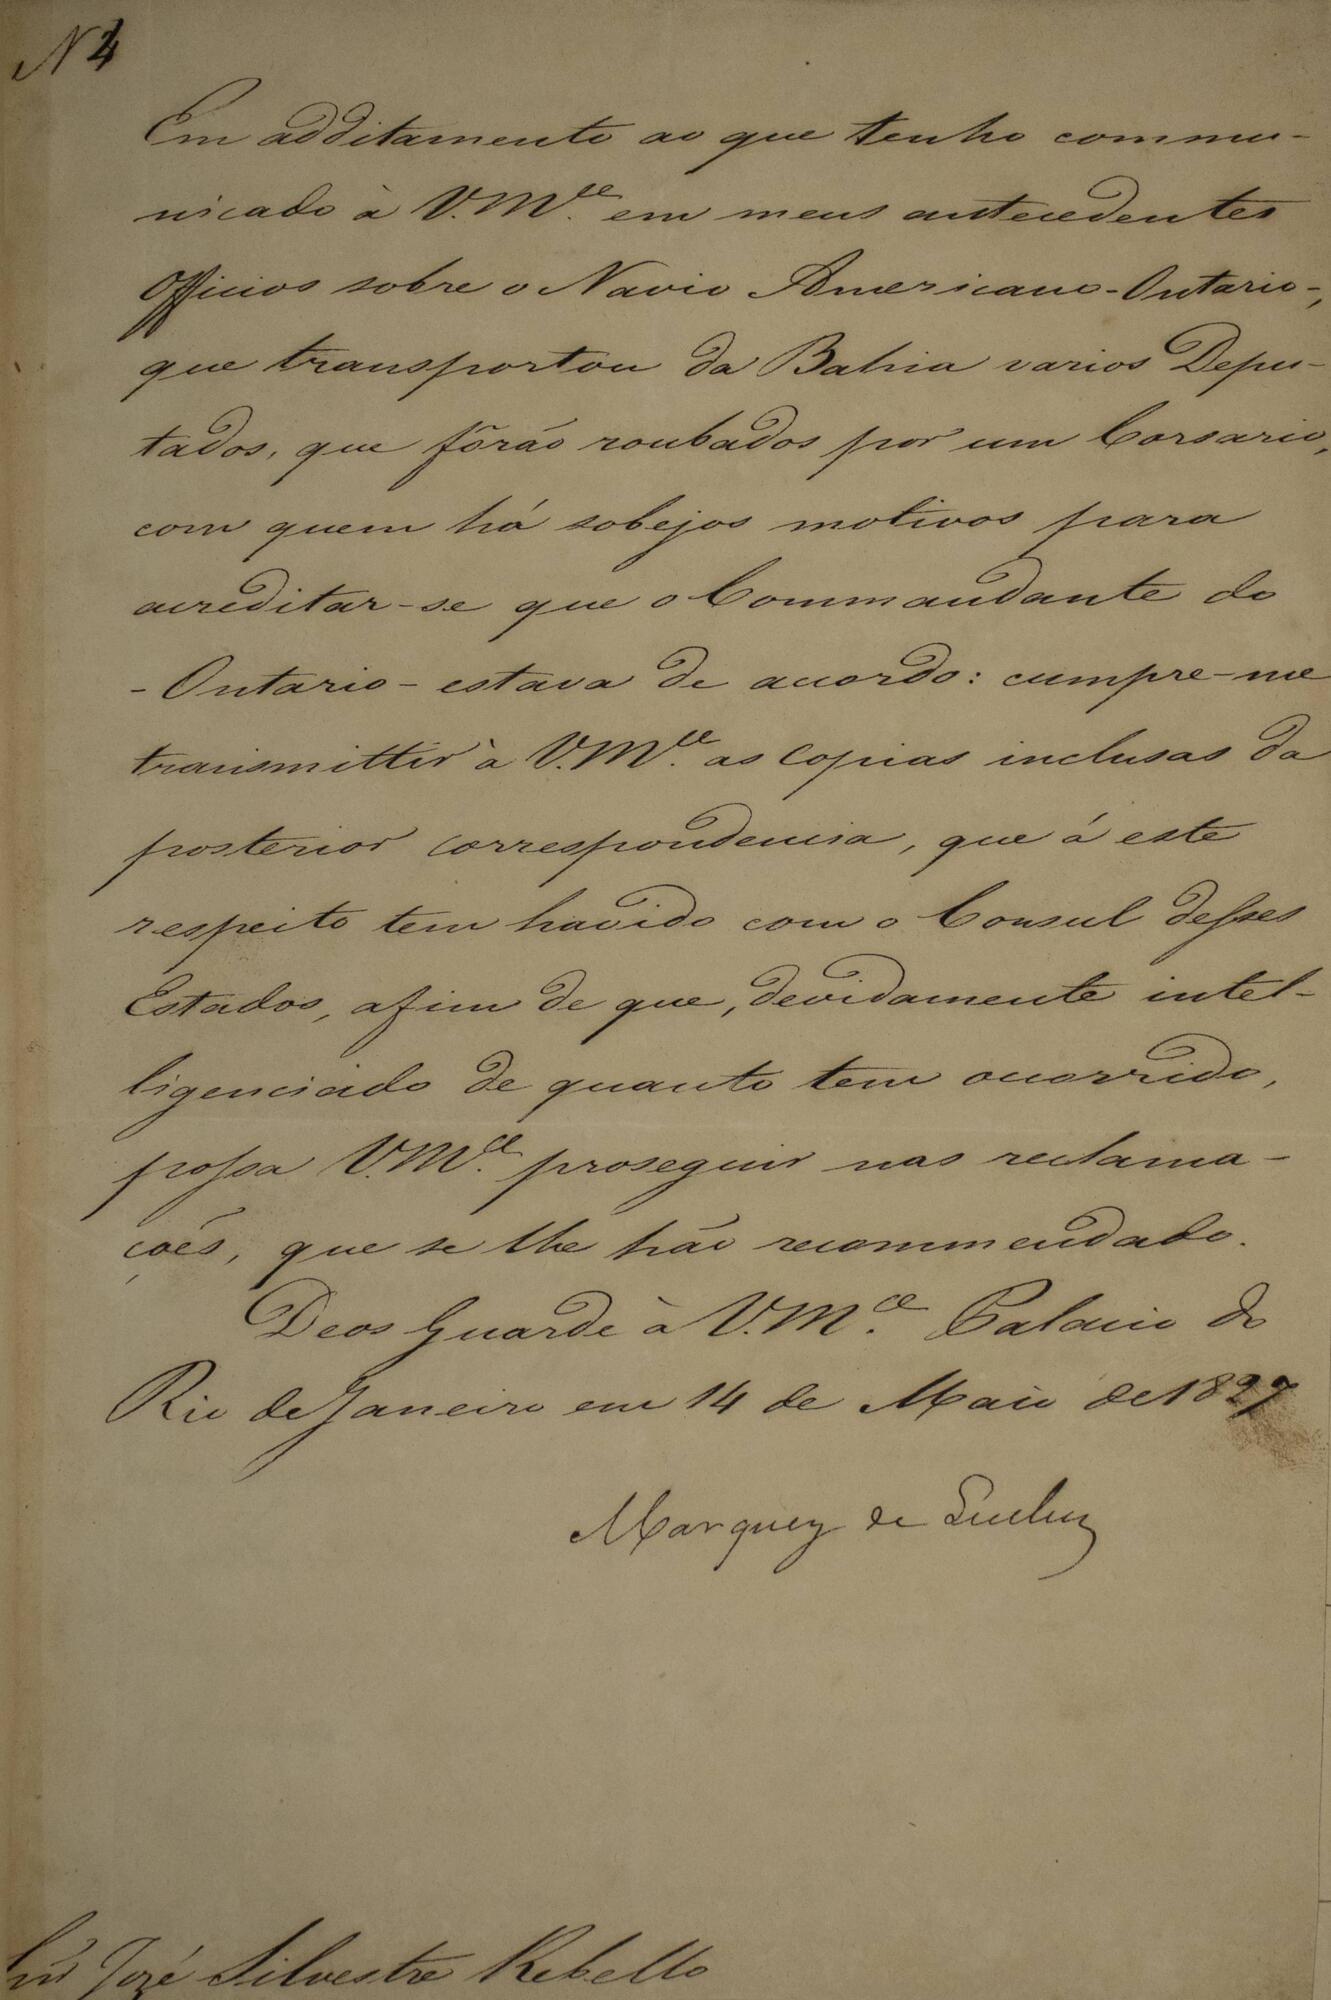 N 4
Em additamento ao que tenho commu-
nicado à V.M.ce em meus antecedentes
Officios sobre o Navio Americano - Ontario -,
que transportou da Bahia varios Depu-
tados, que fôrão roubados por um Corsario,
com quem há sobejos motivos para
acreditar-se que o Commandante do
- Ontario - estava de acordo: cumpre-me
transmittir à V.M.ce as copias inclusas da
posterior correspondencia, que á este
respeito tem havido com o Consul desses
Estados, afim de que, devidamente intel-
ligenciado de quanto tem occorrido,
possa V.M.ce proseguir nas reclama-
ções, que se lhe hão recommendado.
Deos Guarde à V.M.ce Palacio do
Rio de Janeiro em 14 de Maio de 1827
Marquez de Queluz
Snr José Silvestre Rebello